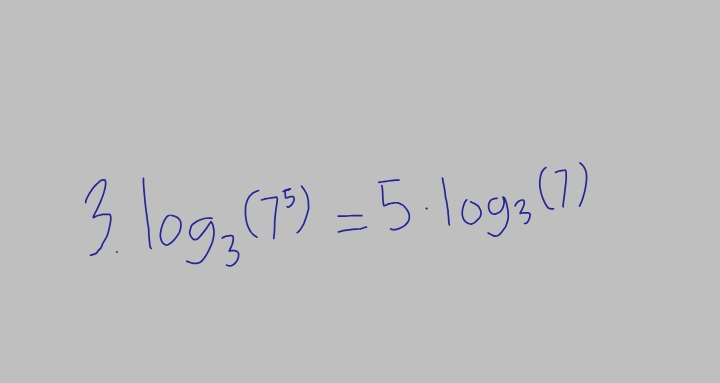 3. log₃(7⁵) = 5 · log₃(7)